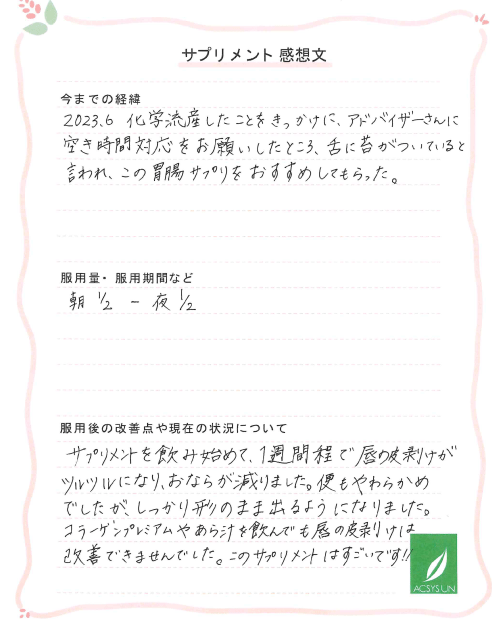 サプリメント 感想文
今までの経緯
2023.6 化学流産したことをきっかけに、アドバイザーさんに
空き時間対応をお願いしたところ、舌に苔がついていると
言われ、この胃腸サプリをおすすめしてもらった。
服用量・服用期間など
朝 1/2 ー 夜 1/2
服用後の改善点や現在の状況について
サプリメントを飲み始めて、1週間程で唇の皮剥けが
ツルツルになり、おならが減りました。便もやわらかめ
でしたが、しっかり形のまま出るようになりました。
コラーゲンプレミアムやあら汁を飲んでも唇の皮剥けは
改善できませんでした。このサプリメントはすごいです!!
ACSYS UN